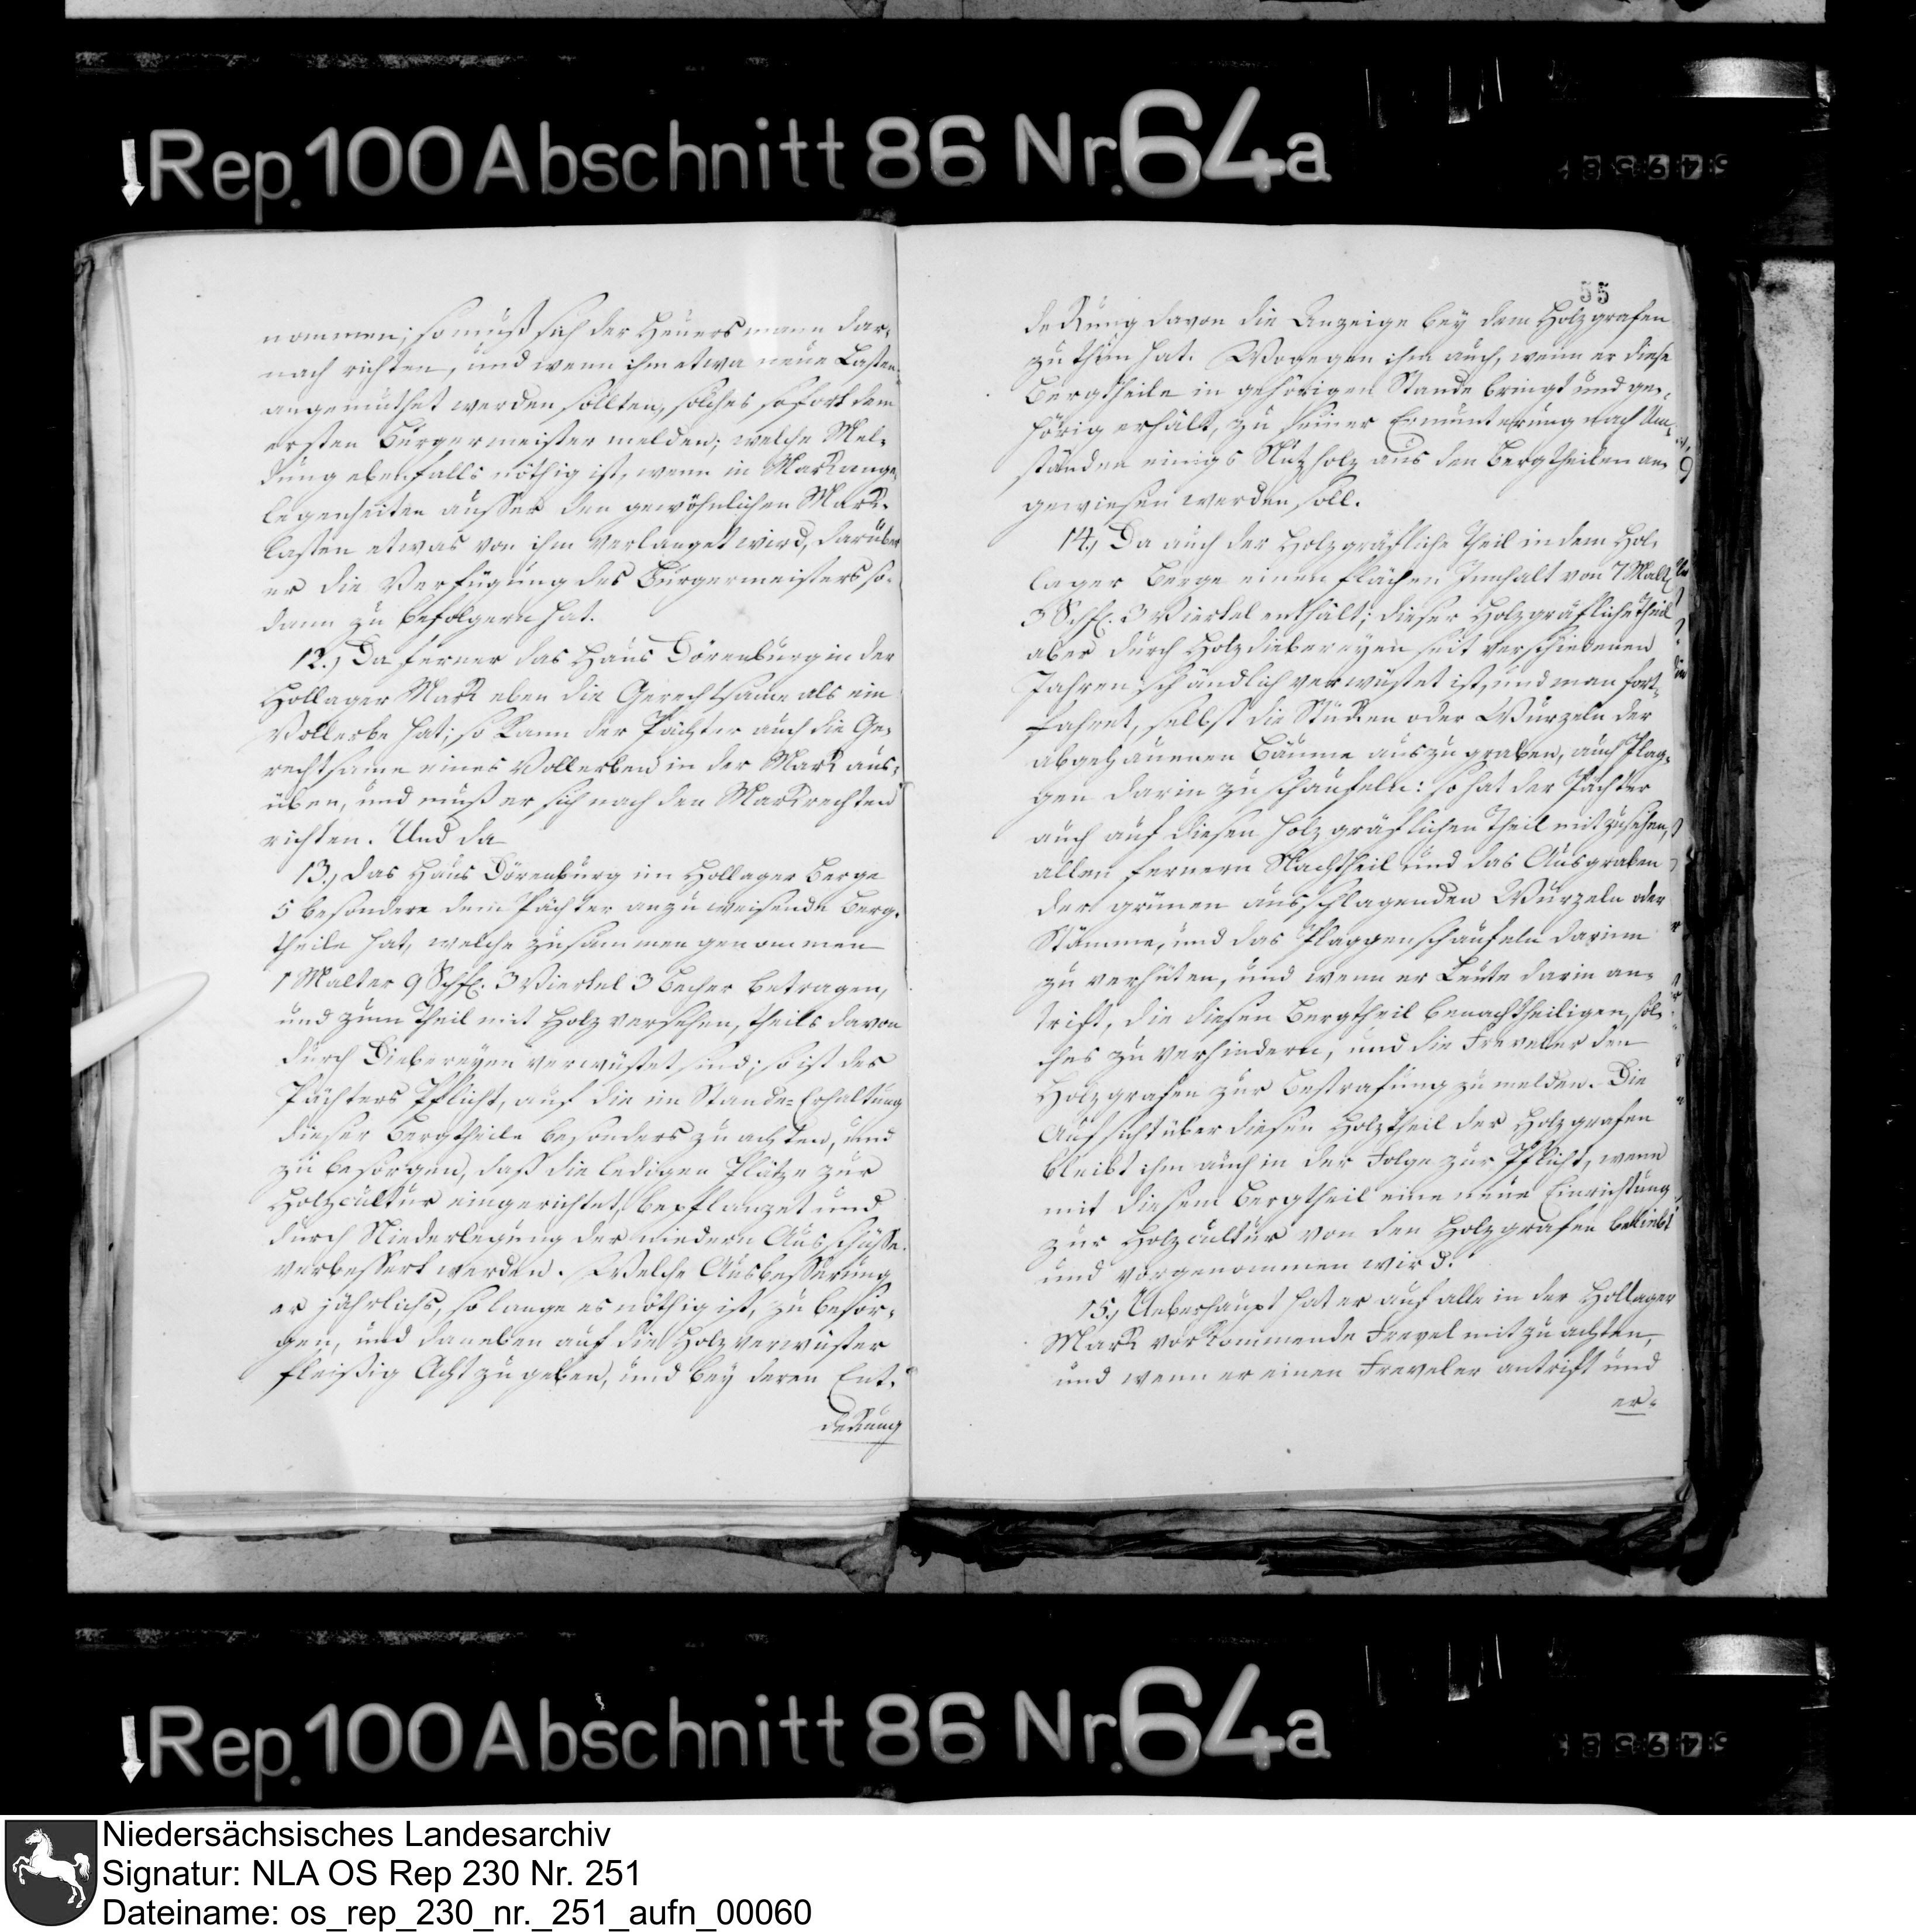 Rep. 100 Abschnitt 86 Nr. 64a
nommen; so muß sich der Heuersmann dar-
nach richten, und wenn ihm etwa neue Lasten
angemuthet werden sollten, solches sofort dem
ersten Bürgermeister melden; welche Mel-
dung ebenfalls nöthig ist, wenn in Markange-
legenheiten ausser den gewöhnlichen Mark-
lasten etwas von ihm verlanget wird, darüber
er die Verfügung des Bürgermeisters so-
dann zu befolgern hat.
12.) Da ferner das Haus Dörenburg in der
Hollager Mark eben die Gerechtsame als ein
Vollerbe hat; so kann der Pächter auch die Ge-
rechtsame eines Vollerben in der Mark aus-
üben, und muß er sich nach den Markrechten
richten. Und da
13.) das Haus Dörenburg im Hollager Berge
5 besondere dem Pächter anzuweisende Berg-
theile hat, welche zusammen genommen
1 Malter 9 Schfl. 3 Viertel 3 Becher betragen,
und zum Theil mit Holz versehen, theils davon
durch Diebereyen verwüstet sind; so ist des
Pächters Pflicht, auf die im Stande-Erhaltung
dieser Bergtheile besonders zu achten, und
zu besorgen, daß die ledigen Plätze zur
Holzcultur eingerichtet, bepflanzet und
durch Niederlegung der niedern Ausschüsse
verbessert werden. Welche Ausbesserung
er jährlichs, so lange es nöthig ist, zu besor-
gen, und daneben auf die Holzverwüster
fleißig Acht zu geben, und bey deren Ent-
deckung
55
deckung davon die Anzeige bey dem Holzgrafen
zu thun hat. Wogegen ihm auch, wenn er diese
Bergtheile in gehörigen Stande bringt und ge-
hörig erhält, zu seiner Ermunterung nach Um-
ständen einigs Nutzholz aus den Bergtheilen an-
gewiesen werden soll.
14.) Da auch der Holzgräfliche Theil in dem Hol-
lager Berge einen flächen Innhalt von 7 Malt.
3 Schfl. 3 Viertel enthält; dieser Holzgräfliche Theil
aber durch Holzdiebereyen seit verschiedenen
Jahren schändlich verwüstet ist, und man fort-
fahret, selbst die Stücken oder Wurzeln der
abgehauenen Bäume auszugraben, auch Plag-
gen darin zu schaufeln: so hat der Pächter
auch auf diesen holzgräflichen Theil mitzusehen,
allen fernern Nachtheil und das Ausgraben
der grünen ausschlagenden Wurzeln oder
Stämme, und das Plaggenschaufeln darinn
zu verhüten, und wenn er Leute darin an-
trift, die diesen Bergtheil benachtheiligen, sol-
ches zu verhindern, und die Freveler den
Holzgrafen zur Bestrafung zu melden. Die
Aufsicht über diesen Holztheil der Holzgrafen
bleibt ihm auch in der Folge zur Pflicht, wenn
mit diesem Bergtheil eine neue Einrichtung
zur Holzcultur von den Holzgrafen beliebt
und vorgenommen wird.
15.) Ueberhaupt hat er auf alle in der Hollager
Mark vorkommende Frevel mit zu achten,
und wenn er einen Freveler antrift und
er-
Rep. 100 Abschnitt 86 Nr. 64a
Niedersächsisches Landesarchiv
Signatur: NLA OS Rep 230 Nr. 251
Dateiname: os_rep_230_nr._251_aufn_00060